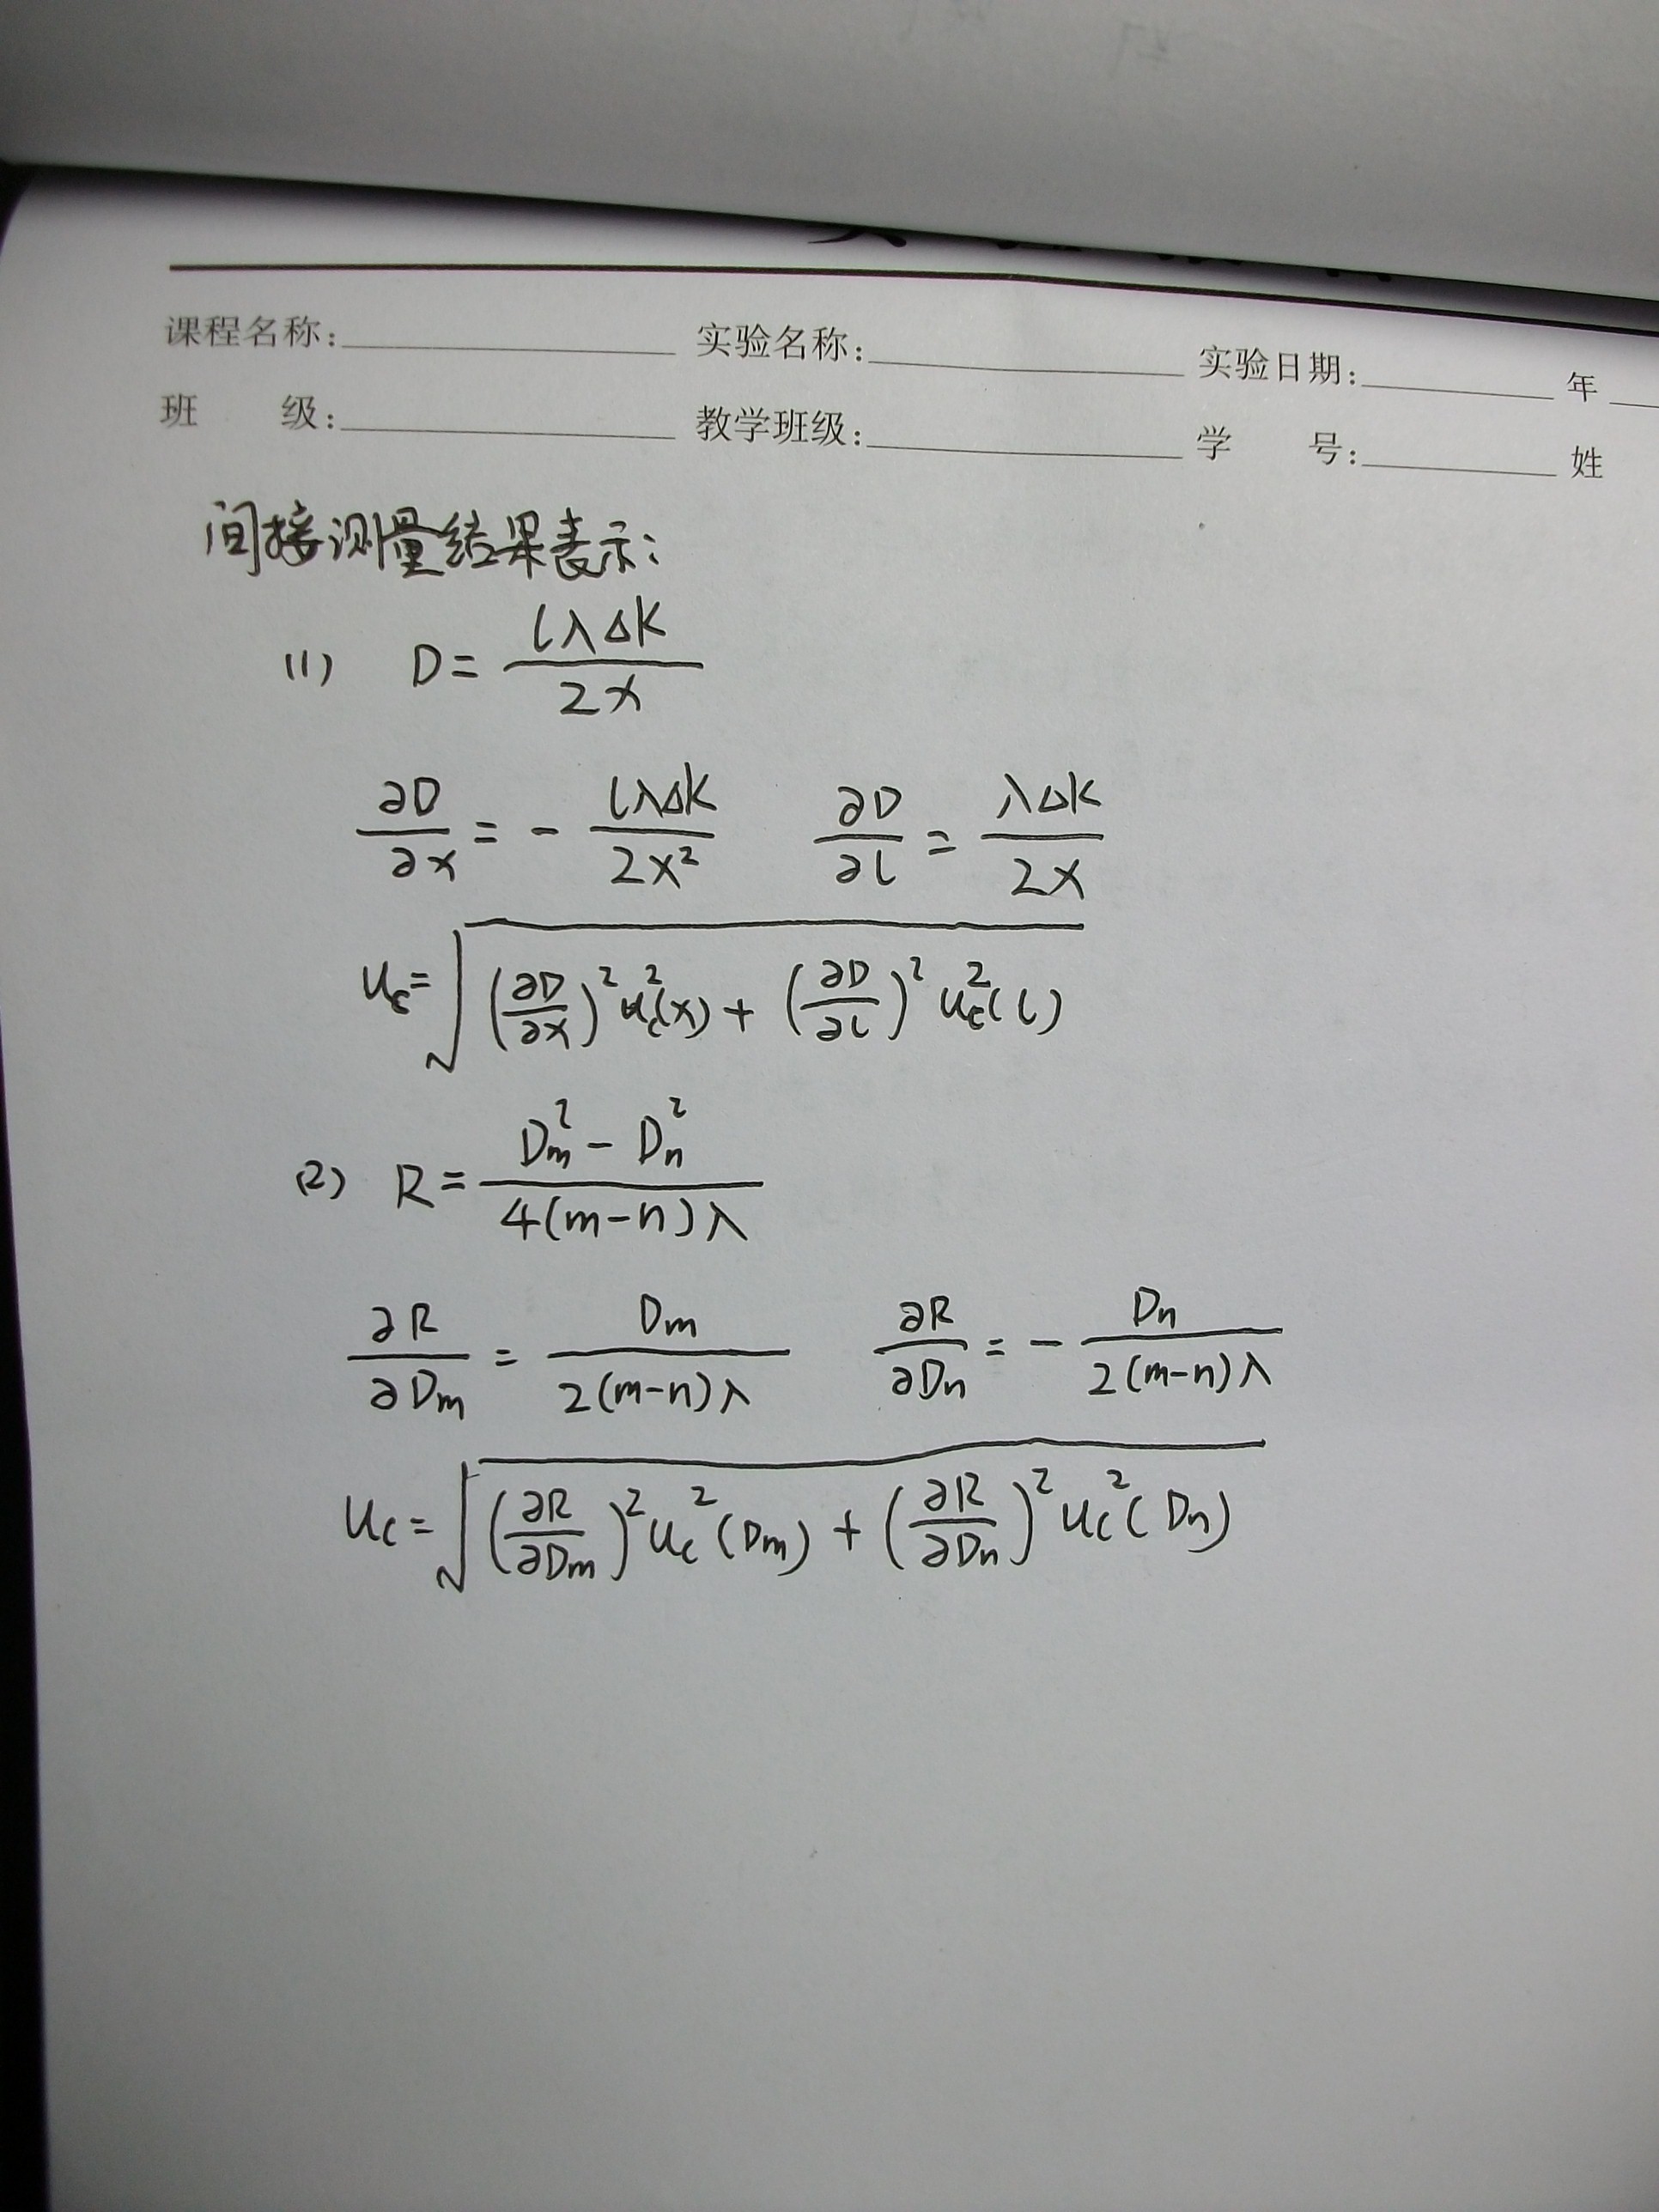 课程名称: 实验名称: 实验日期: 年
班 级: 教学班级: 学 号: 姓
间接测量结果表示:
(1) D = lλΔK / 2x
∂D/∂x = - lλΔK / 2x² ∂D/∂l = λΔK / 2x
u_c = √((∂D/∂x)² u_c²(x) + (∂D/∂l)² u_c²(l))
(2) R = (D_m² - D_n²) / 4(m-n)λ
∂R/∂D_m = D_m / 2(m-n)λ ∂R/∂D_n = - D_n / 2(m-n)λ
u_c = √((∂R/∂D_m)² u_c²(D_m) + (∂R/∂D_n)² u_c²(D_n))